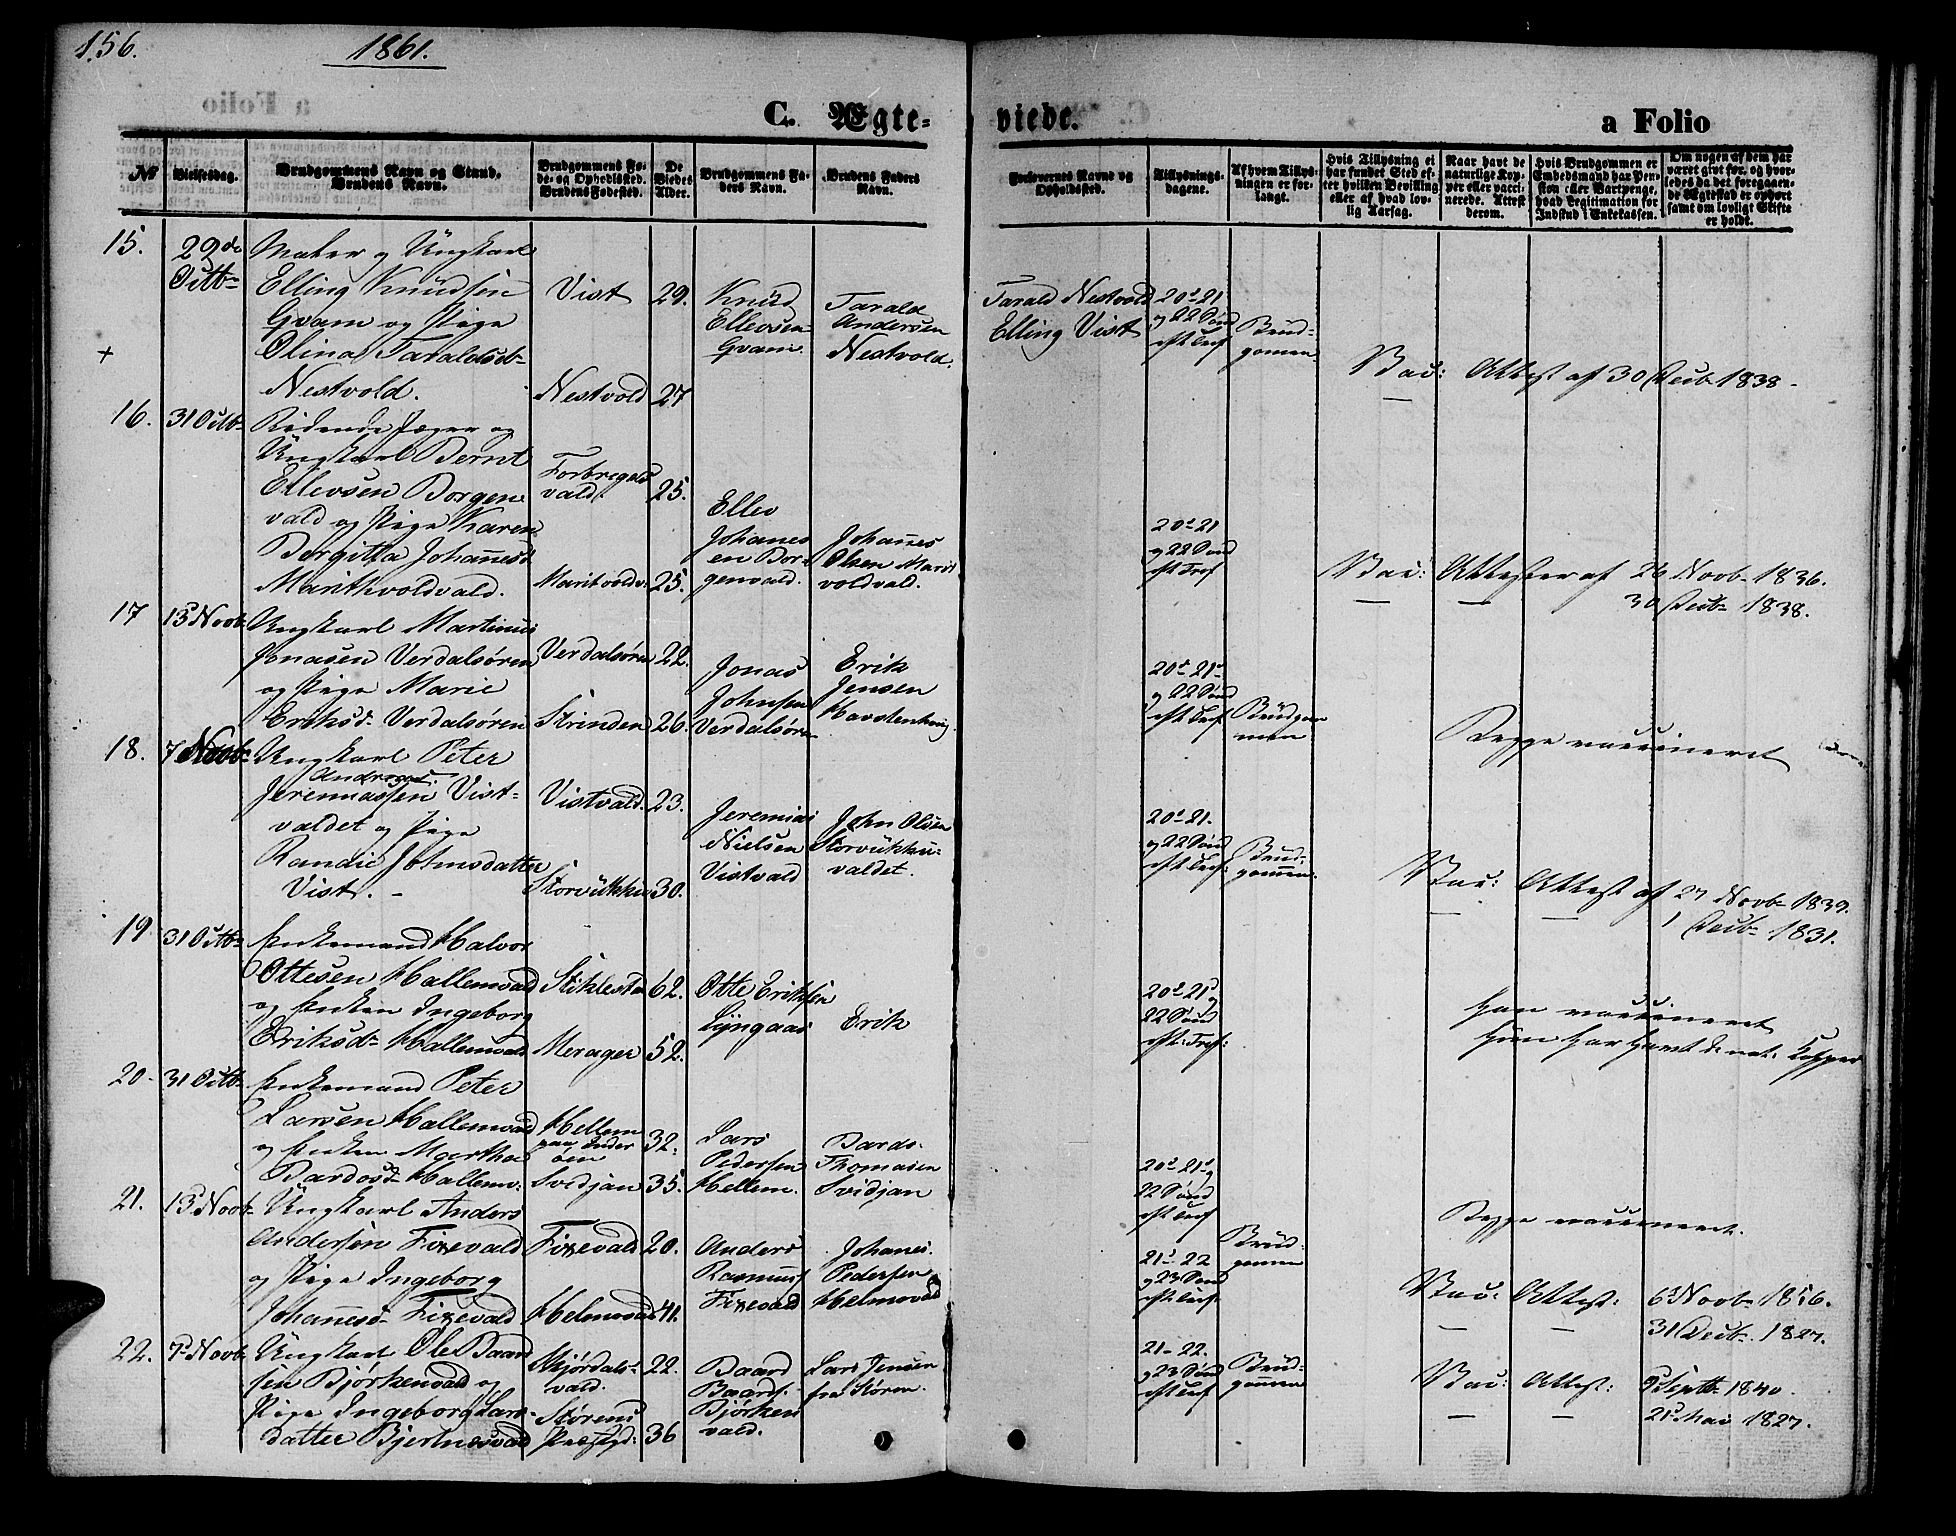 156.
1861.
C. Ægte-
viede.
a Folio
№
Vielsesdag.
Brudgommens Navn og Stand,
Brudens Navn.
Brudgommens Fø-
de- og Opholdssted.
Brudens Fødested.
De
Viedes
Alder.
Brudgommens Fa-
ders Navn.
Brudens Faders
Navn.
Forlovernes Navne og
Opholdssted.
Tillysnings-
dagene.
Af hvem Tillys-
ningen er for-
langt.
Hvis Tillysning ei
har fundet Sted ef-
ter hvilken Bevilling
eller af hvad lov-
lig Aarsag.
Naar havt de
naturlige Kop-
per eller vacci-
nerede. Attest
derom.
Hvis Brudgommen er
Embedsmand har Pen-
sion eller Vartpenge,
hvad Legitimation for
Indskud i Enkekassen.
Om nogen af dem har
været gift før, og hvor-
ledes da det foregaaen-
de Ægteskab er ophørt
samt om lovligt Skifte
er holdt.
15.
29de
Octb
Maler og Ungkarl
Elling Knudsen
Gvam og Pige
Olina Taraldsd
Nestvold.
Vist
29.
Nestvold
27
Knud
Ellevsen
Gvam.
Tarald
Andersen
Nestvold.
Tarald Nestvold
Elling Vist
20d 21
og 22 Sønd
eft Tref
Brud-
gomen
Vac: Attest af 30 Decb 1838
+
16.
31 Octb
Ridende Jæger og
Ungkarl Bernt
Ellevsen Borgen
vald og Pige Karen
Bergitta Johanesd
Marithvoldvald.
Forbregds
vald
25.
Maritvoldv:
25.
Ellev
Johanes
en Bor-
genvald.
Johanes
Olsen Marit
voldvald.
20d 21
og 22 Sønd
eft Tref
Vac: Attester af 26 Novb 1836.
30 Decb 1838.
17
13 Novb
Ungkarl Martinus
Jonasen Verdalsøren
og Pige Marie
Eriksd Verdalsøren
Verdalsøren
22.
Strinden
26.
Jonas
Johnsen
Verdalsøren
Erik
Jensen
20d 21
og 22 Sønd
eft Tref
Brudgom
men
Begge vaccineret
18.
7 Novb
Ungkarl Peter
Andreas
Jeremiassen Vist-
valdet og Pige
Randie Johnsdatter
Vist. -
Vistvald.
23.
Storvukku
30.
Jeremias
Nielsen
Vistvald
John Olsen
Storvukku-
valdet.
20d 21.
og 22 Sønd
eft Tref:
Brud-
gommen.
Vac: Attest af 27 Novb 1839.
1 Decb 1831.
19
31 Octb
Enkemand Halvor
Ottesen Hallemvald
og Enken Ingeborg
Eriksd Hallemvald
Stiklestad
62.
Merager
52.
Otte Eriksen
Lyngaas
Erik
20d 21 og
22 Sønd
eft: Tref:
Han vaccineret
Hun har havt de nat: Kopper
20.
31 Octb
Enkemand Peter
Larsen Hallemvald
og Enken Martha
Bardosd Hallemv:
Hellem
paa Inder
øen
32.
Svedjan
35.
Lars
Pedersen
Hellem.
Bardo
Thomasen
Svedjan
20d 21 og
22 Sønd
eft Tref
Begge vaccineret.
21.
13 Novb
Ungkarl Anders
Andersen Fixevald
og Pige Ingeborg
Johanesd Fixevald
Fixevald
20.
Helmovald
41.
Anders
Rasmus
Fixevald
Johanes.
Pedersen
Helmovald
21. 22
og 23 Sønd
eft Tref
Brud-
gomen
Vac: Attest: 6 Novb 1856.
31 Decb 1827.
22.
7 Novb
Ungkarl Ole Baard
sen Bjørkenvald og
Pige Ingeborg Lars-
datter Bjertnesvald
Skjørdals-
vald.
22.
Størens
Præstegd:
36
Baard
Baards.
Bjørken
vald.
Lars Jensen
fra Støren.
21. 22.
og 23 Sønd
eft Tref
Brud-
gommen
Vac: Attest: 9 Septb 1840.
21 Mai 1827.